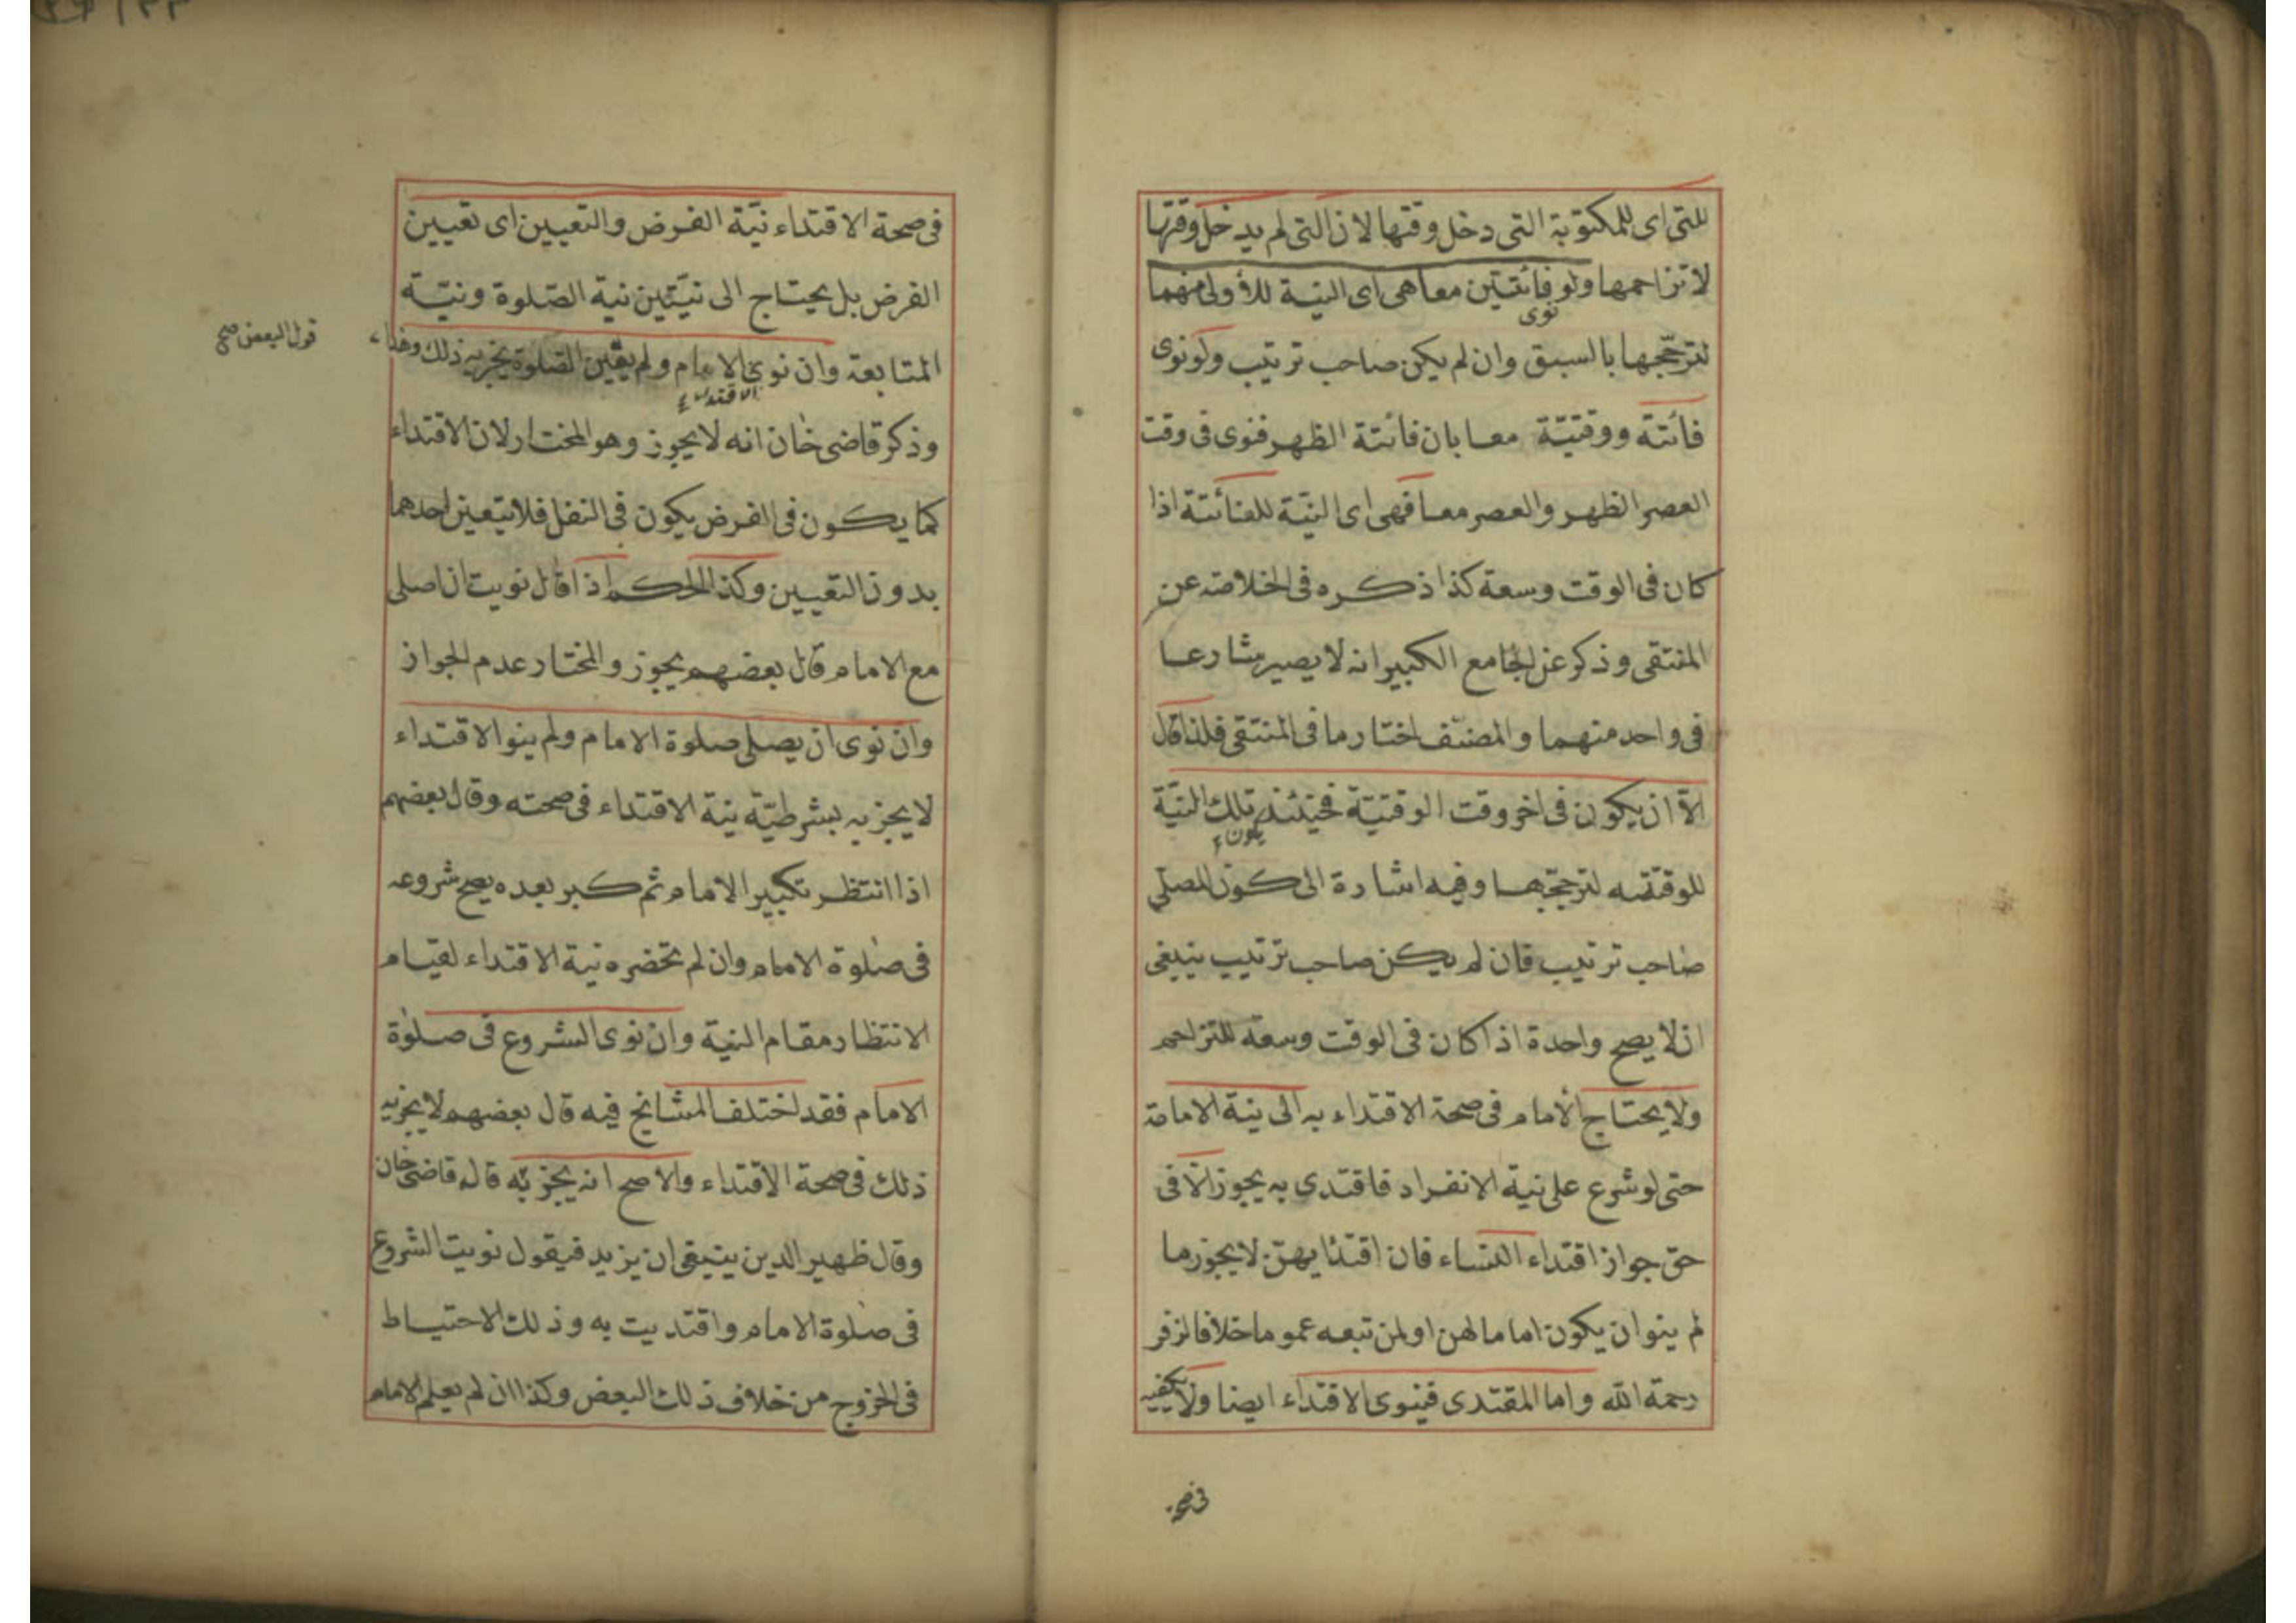 للتى اى للمكتوبة التى دخل وقتها لان التى لم يدخل وقتها
لا تزاحمها ولو فائتتين معا هى اى النية للاولى منهما
نوى
لترجحها بالسبق وان لم يكن صاحب ترتيب ولو نوى
فائتة ووقتيّة معا بان فائتة الظهر فنوى فى وقت
العصر الظهر والعصر معا فهى اى النيّة للفائتة اذا
كان فى الوقت وسعة كذا ذكره فى الخلاصه عن
المنتقى وذكر عن الجامع الكبير انه لا يصير شارعا
فى واحد منهما والمصنّف اختار ما فى المنتقى فلذا قال
الّا ان يكون فى اخر وقت الوقتيّة فحينئذ تلك النيّة
يكون
للوقتيه لترجحّها وفيه اشارة الى كون المصلّي
صاحب ترتيب فان لم يكن صاحب ترتيب ينبغى
ان لا يصح واحدة اذا كان فى الوقت وسعة للتزاحم
ولا يحتاج الامام فى صحة الاقتداء به الى نية الامامة
حتى لو شرع على نية الانفراد فاقتدى به يجوز الّا فى
حق جواز اقتداء النساء فان اقتدا يهنّ لا يجوز ما
لم ينو ان يكون اماما لهن او لمن تبعه عموما خلافا لزفر
رحمة الله واما المقتدى فينوى الاقتداء ايضا ولا يكفيه
فى صحة
فى صحة الاقتداء نيّة الفرض والتعيين اى تعيين
الفرض بل يحتاج الى نيّتين نية الصّلوة ونيّة
المتابعة وان نوى الامام ولم يعيّن الصّلوة يجزيه ذلك وهذا
الاقتداء
قول البعض صح
وذكر قاضى خان انه لا يجوز وهو المختار لان الاقتداء
كما يكون فى الفرض يكون فى النفل فلا يتعين احدهما
بدون التعيين وكذا الحكم اذا قال نويت ان اصلى
مع الامام قال بعضهم يجوز والمختار عدم الجواز
وان نوى ان يصلى صلوة الامام ولم ينو الاقتداء
لا يجزيه بشرطيّة نية الاقتداء فى صحته وقال بعضهم
اذا انتظر تكبير الامام ثم كبر بعده يصح شروعه
فى صلوة الامام وان لم تحضره نية الاقتداء لقيام
الانتظار مقام النية وان نوى الشروع فى صلوة
الامام فقد اختلف المشايخ فيه قال بعضهم لا يجزيه
ذلك فى صحة الاقتداء والاصح انه يجزيه قاله قاضى خان
وقال ظهير الدين ينبغى ان يزيد فيقول نويت الشروع
فى صلوة الامام واقتديت به وذلك الاحتياط
فى الخروج من خلاف ذلك البعض وكذا ان لم يعلم الامام